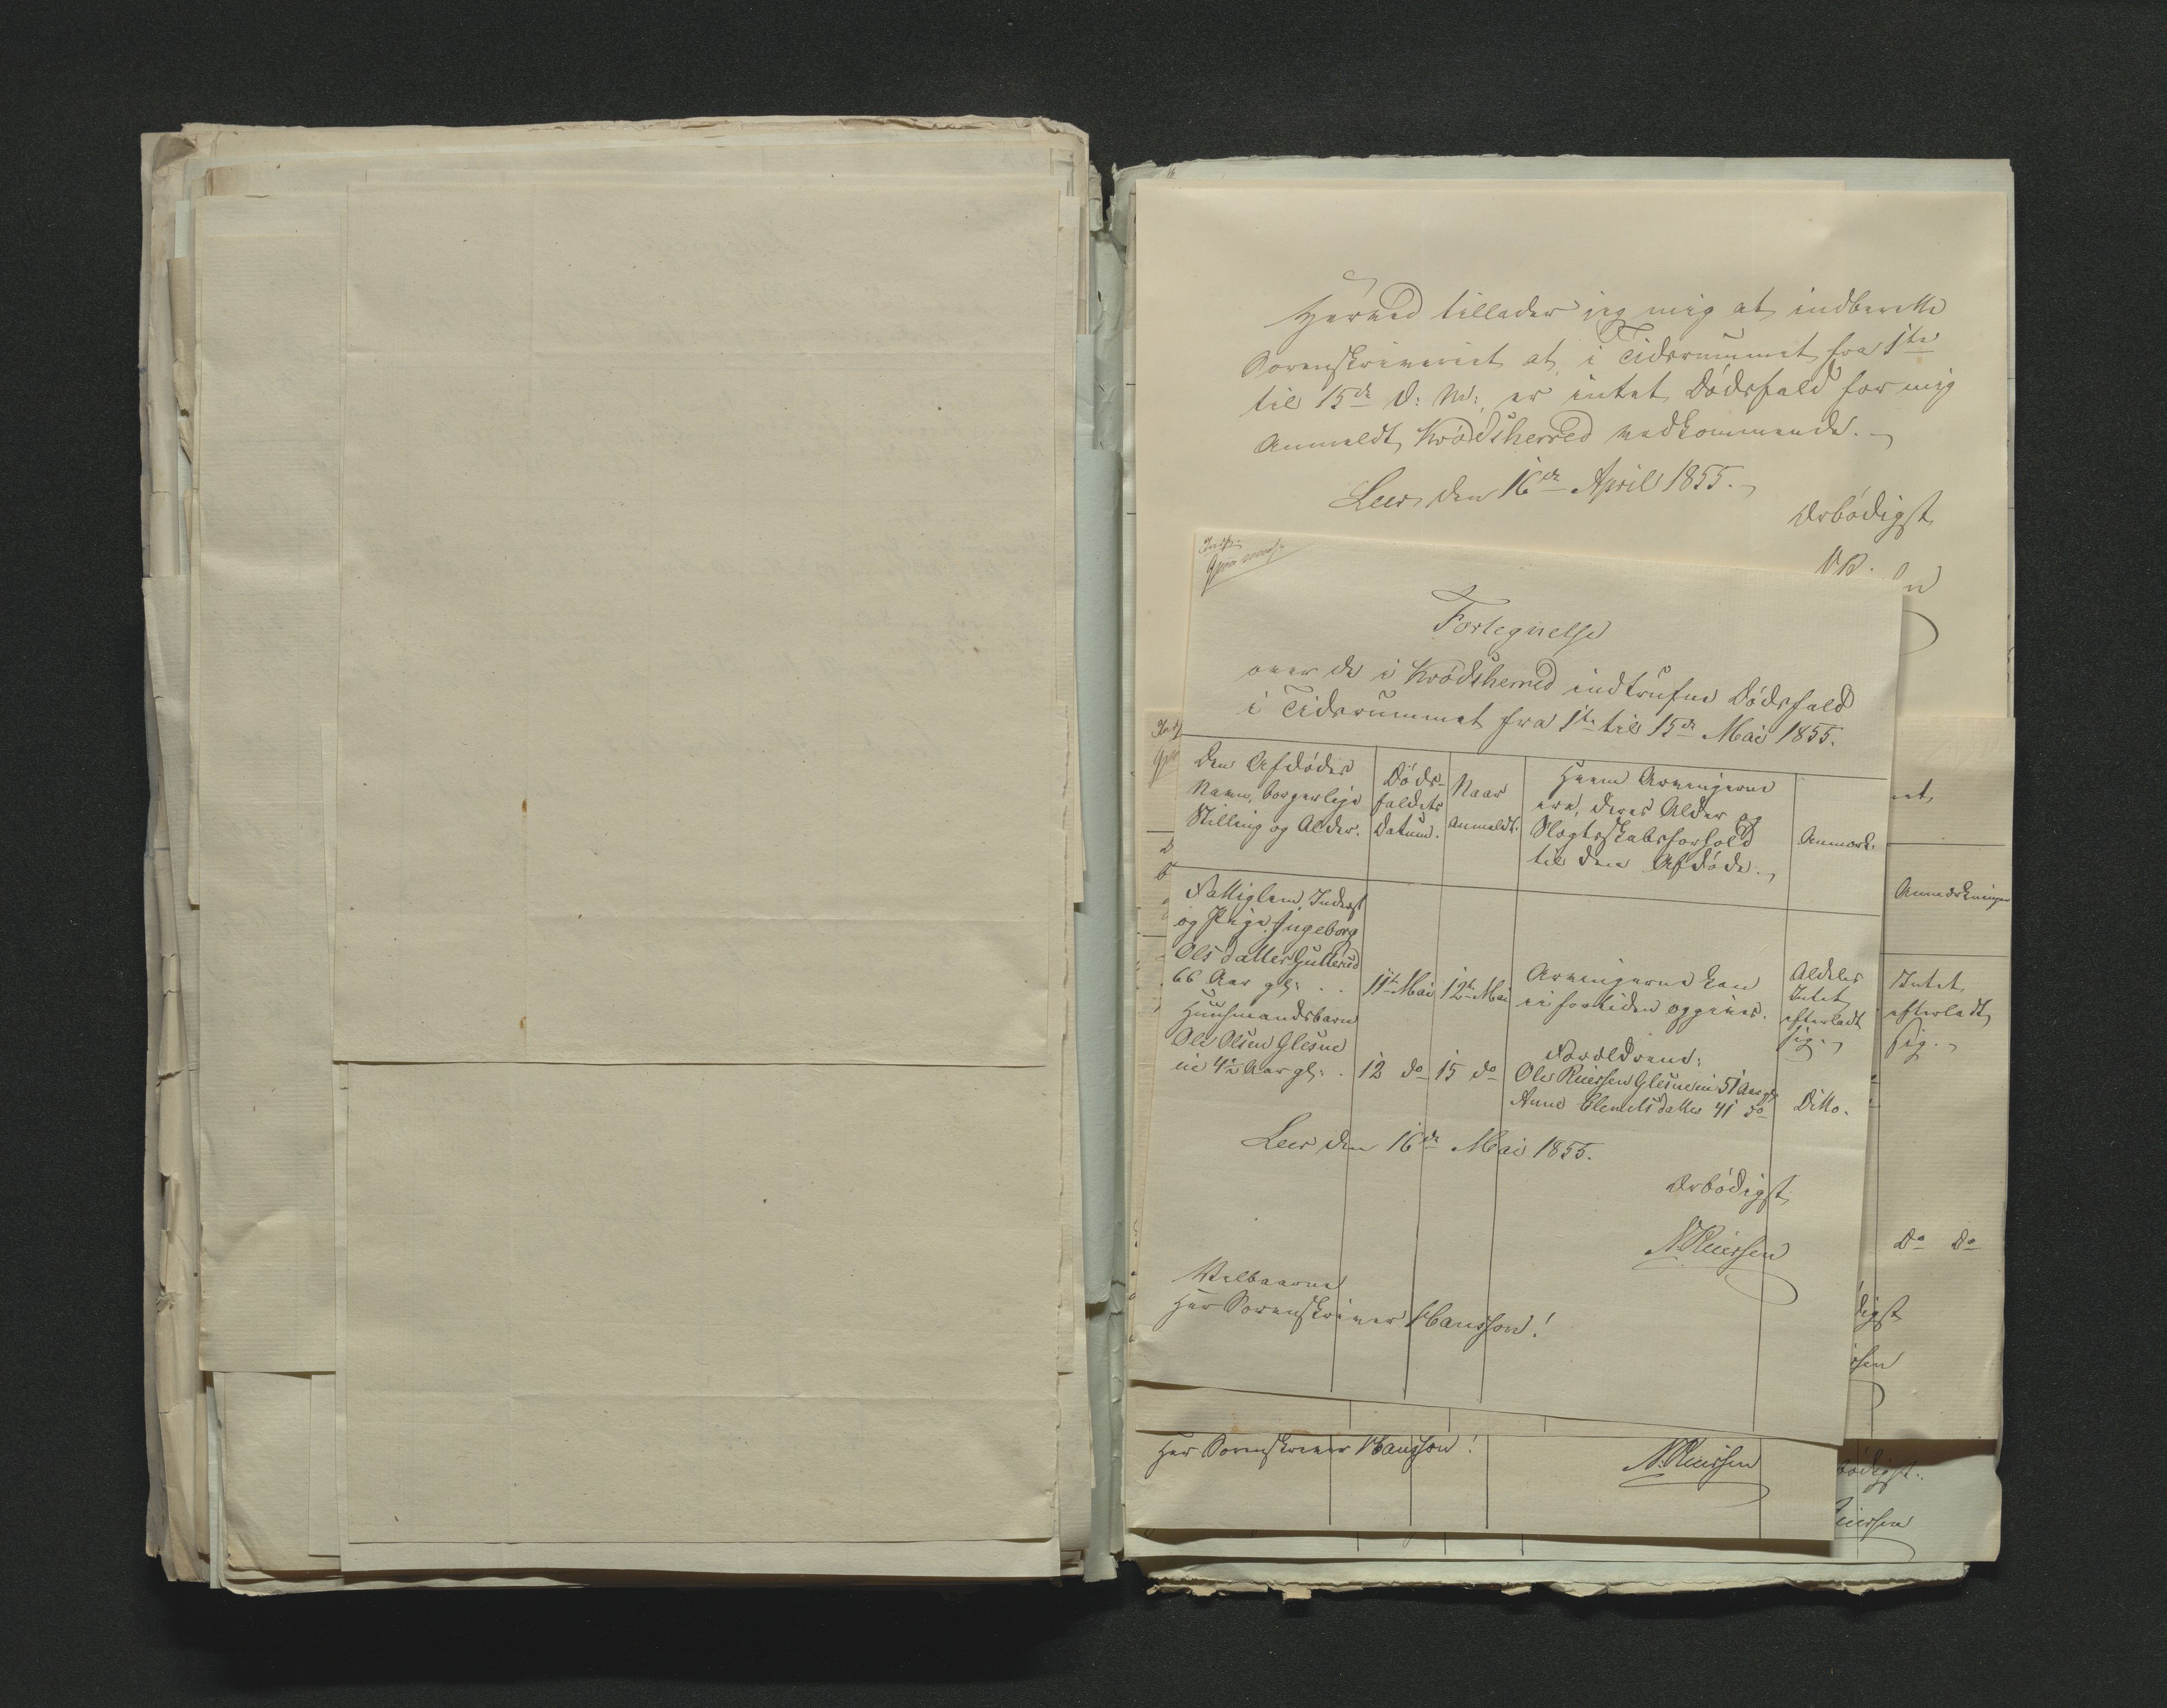 Herved tillader jeg mig at indberette
Sorenskriveriet at i Tidsrummet fra 1ste
til 15de d: M: er intet Dødsfald for mig
Anmeldt, Krødsherred vedkommende.
Leer, den 16de April 1855.
Ærbødigst
Fortegnelse
over de i Krødsherred indtrufne Dødsfald
i Tidsrummet fra 1ste til 15de Mai 1855.
Den Afdødes
Navn, borgerlige
Stilling og Alder.
Døds-
faldets
Datum.
Naar
anmeldt.
Hvem Arvingerne
ere, deres Alder og
Slægtskabsforhold
til den Afdøde.
Anmærk.
Fattiglem, Inderst
og Pige Ingeborg
Olsdatter Gutterud
66 Aar gl:
11te Mai
12te Mai
Arvingerne kan
ei fortiden opgives.
Aldeles
Intet
efterladt
sig.
Huusmandsbarn
Ole Olsen Glesne
eie 4½ Aar gl:
12 do
15 do
Forældrene:
Ole Reiersen Glesneeie 51 Aar gl:
Anne Clemetsdatter 41 do
Ditto.
Leer den 16de Mai 1855.
Ærbødigst
N. Reiersen
Velbaarne
Herr Sorenskriver Hansson!
Herr Sorenskriver Hansson!
N. Reiersen
Anmærkninger
Intet
efterladt
sig.
Do Do